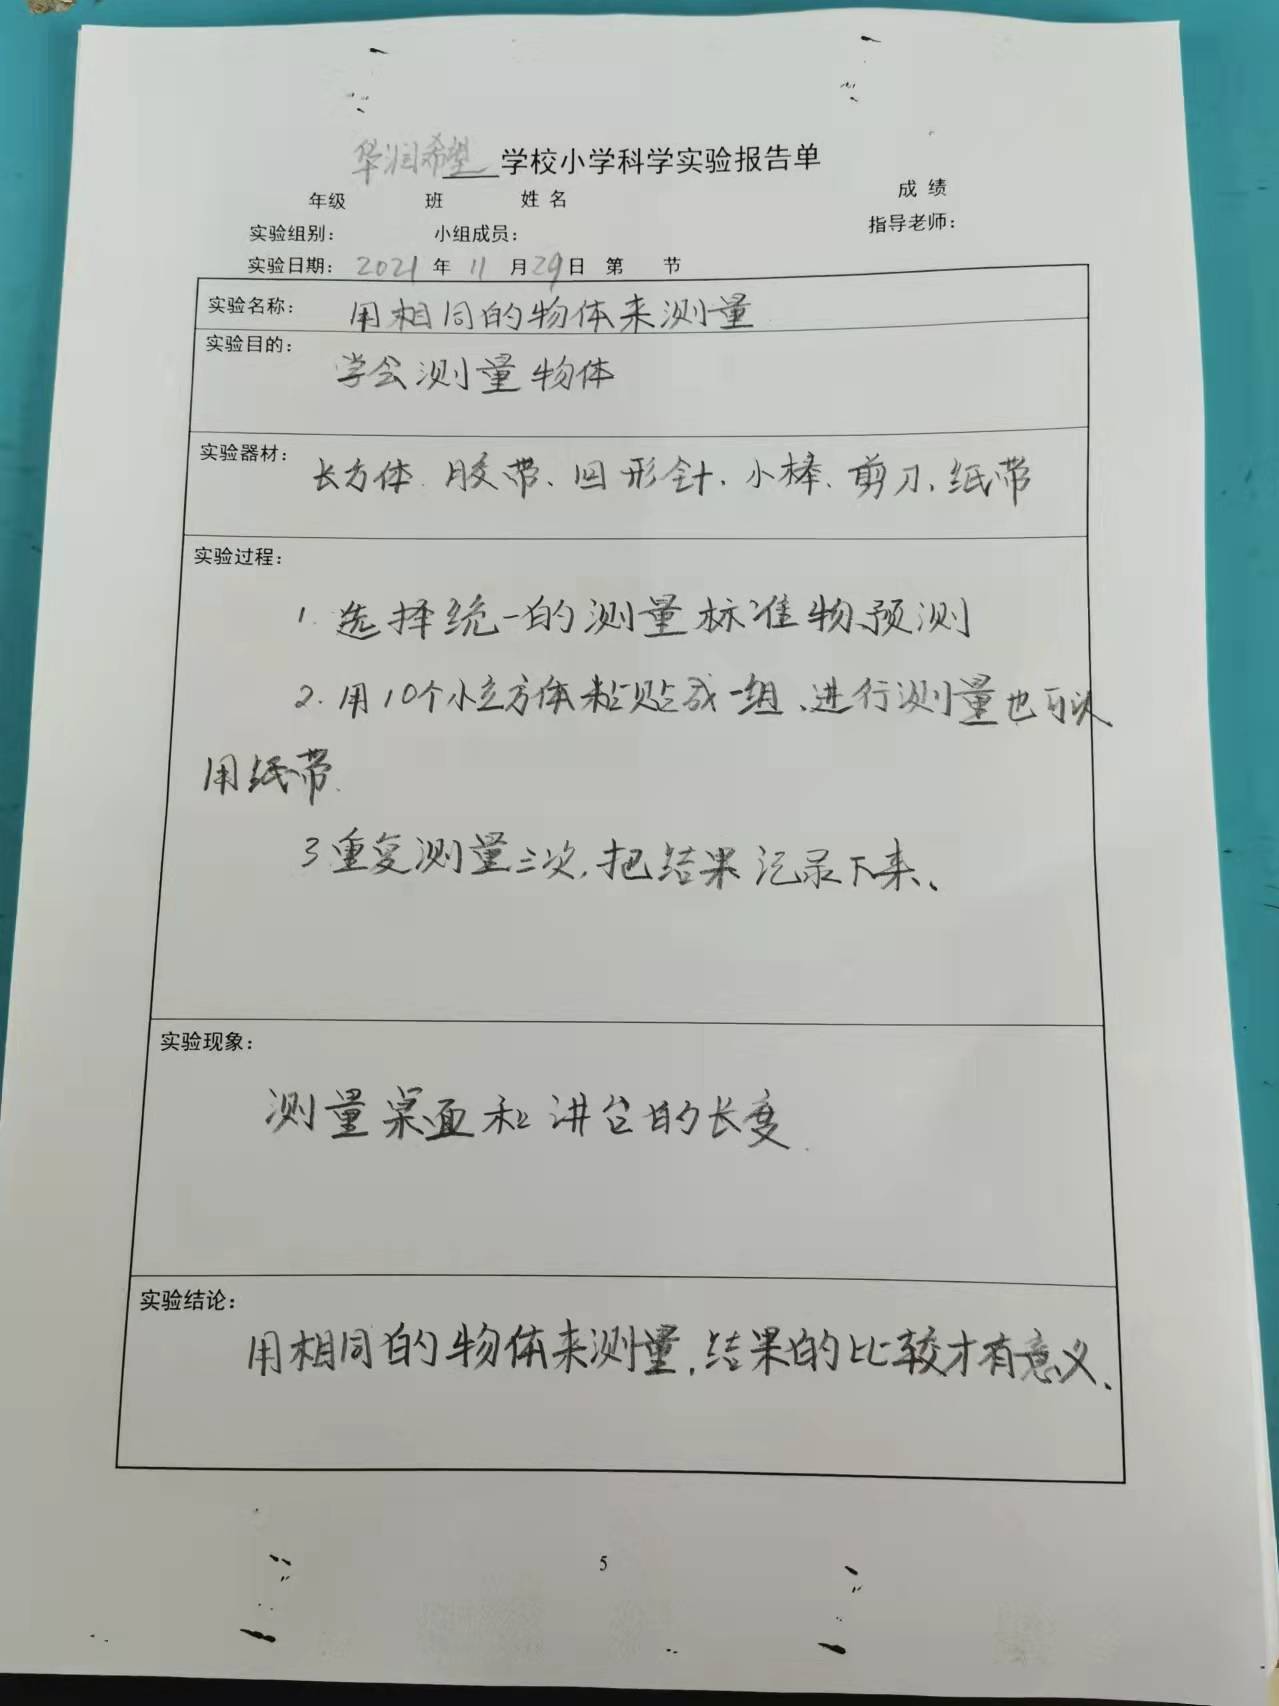 华润希望学校小学科学实验报告单
年级 班 姓名 成绩
实验组别： 小组成员： 指导老师：
实验日期： 2021 年 11 月 29 日 第 节
实验名称： 用相同的物体来测量
实验目的： 学会测量物体
实验器材： 长方体、胶带、回形针、小棒、剪刀、纸带
实验过程：
1. 选择统一的测量标准物、预测
2. 用10个小立方体粘贴成一组、进行测量也可以
用纸带.
3 重复测量三次，把结果记录下来、
实验现象：
测量桌面和讲台的长度.
实验结论：
用相同的物体来测量，结果的比较才有意义、
5